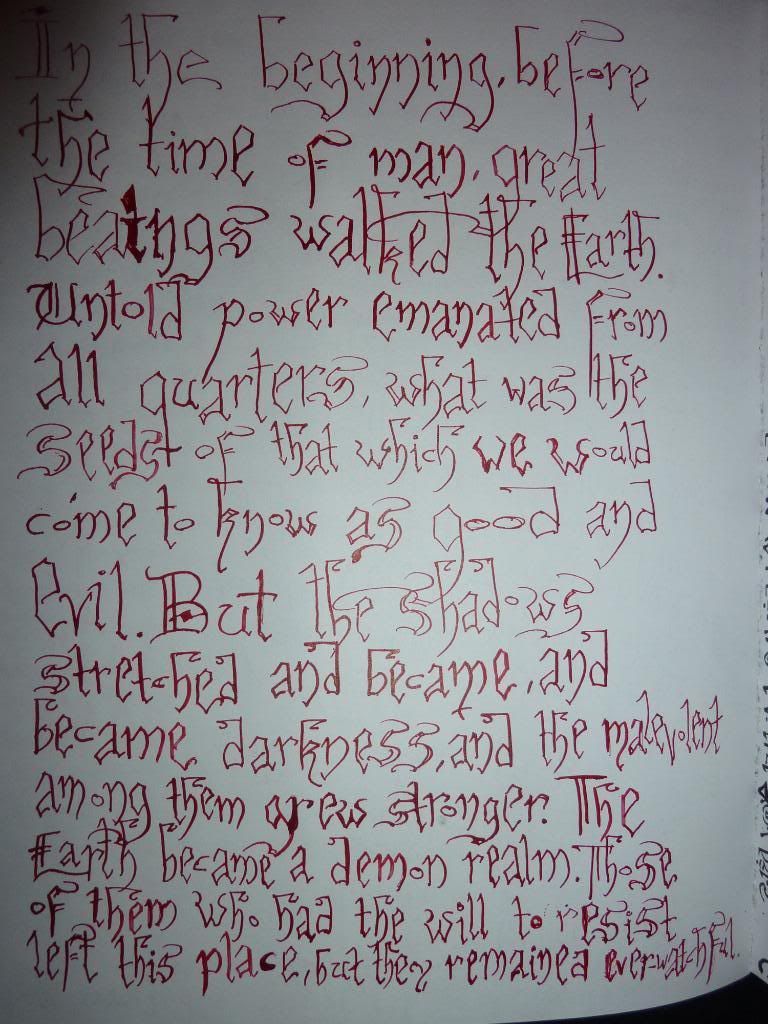 In the beginning, before
the time of man, great
beatngs walked the Earth.
Untold power emanated from
all quarters, what was the
seedst of that which we would
come to know as good and
Evil. But the shadows
stretched and became, and
became darkness, and the malevolent
among them grew stronger. The
Earth became a demon realm. Those
of them who had the will to resist
left this place, but they remained ever-watchful.